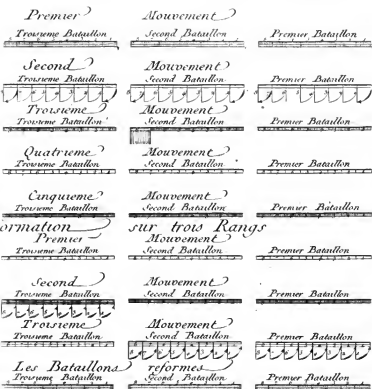 Premier Mouvement
Troisieme Bataillon Second Bataillon Premier Bataillon
Second Mouvement
Troisieme Bataillon Second Bataillon Premier Bataillon
Troisieme Mouvement
Troisieme Bataillon Second Bataillon Premier Bataillon
Quatrieme Mouvement
Troisieme Bataillon Second Bataillon Premier Bataillon
Cinquieme Mouvement
Troisieme Bataillon Second Bataillon Premier Bataillon
ormation sur trois Rangs
Premier Mouvement
Troisieme Bataillon Second Bataillon Premier Bataillon
Second Mouvement
Troisieme Bataillon Second Bataillon Premier Bataillon
Troisieme Mouvement
Troisieme Bataillon Second Bataillon Premier Bataillon
Les Bataillons reformes
Troisieme Bataillon Second Bataillon Premier Bataillon